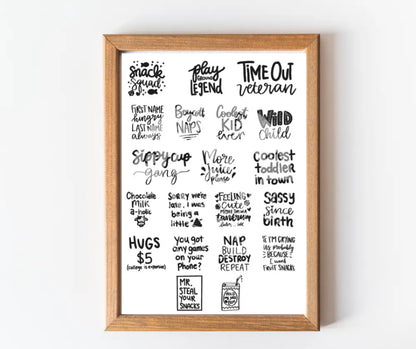 snack
squad
play
GROUND
LEGEND
TIME OUT
veteran
FIRST NAME
hungry
LAST NAME
always
Boycott
NAPS
Coolest
KID
ever
WILD
child
Sippy cup
gang
More
Juice
please
Coolest
toddler
in town
Chocolate
Milk
a-holic
SORRY we're
late, I was
being a
little
FEELING
Cute
Sassy
since
birth
HUGS
$5
You got
any games
on your
Phone?
NAP
BUILD
DESTROY
REPEAT
IF I'M CRYING
ITS PROBABLY
BECAUSE
I want
FRUIT SNACKS
MR.
STEAL
YOUR
SNACKS